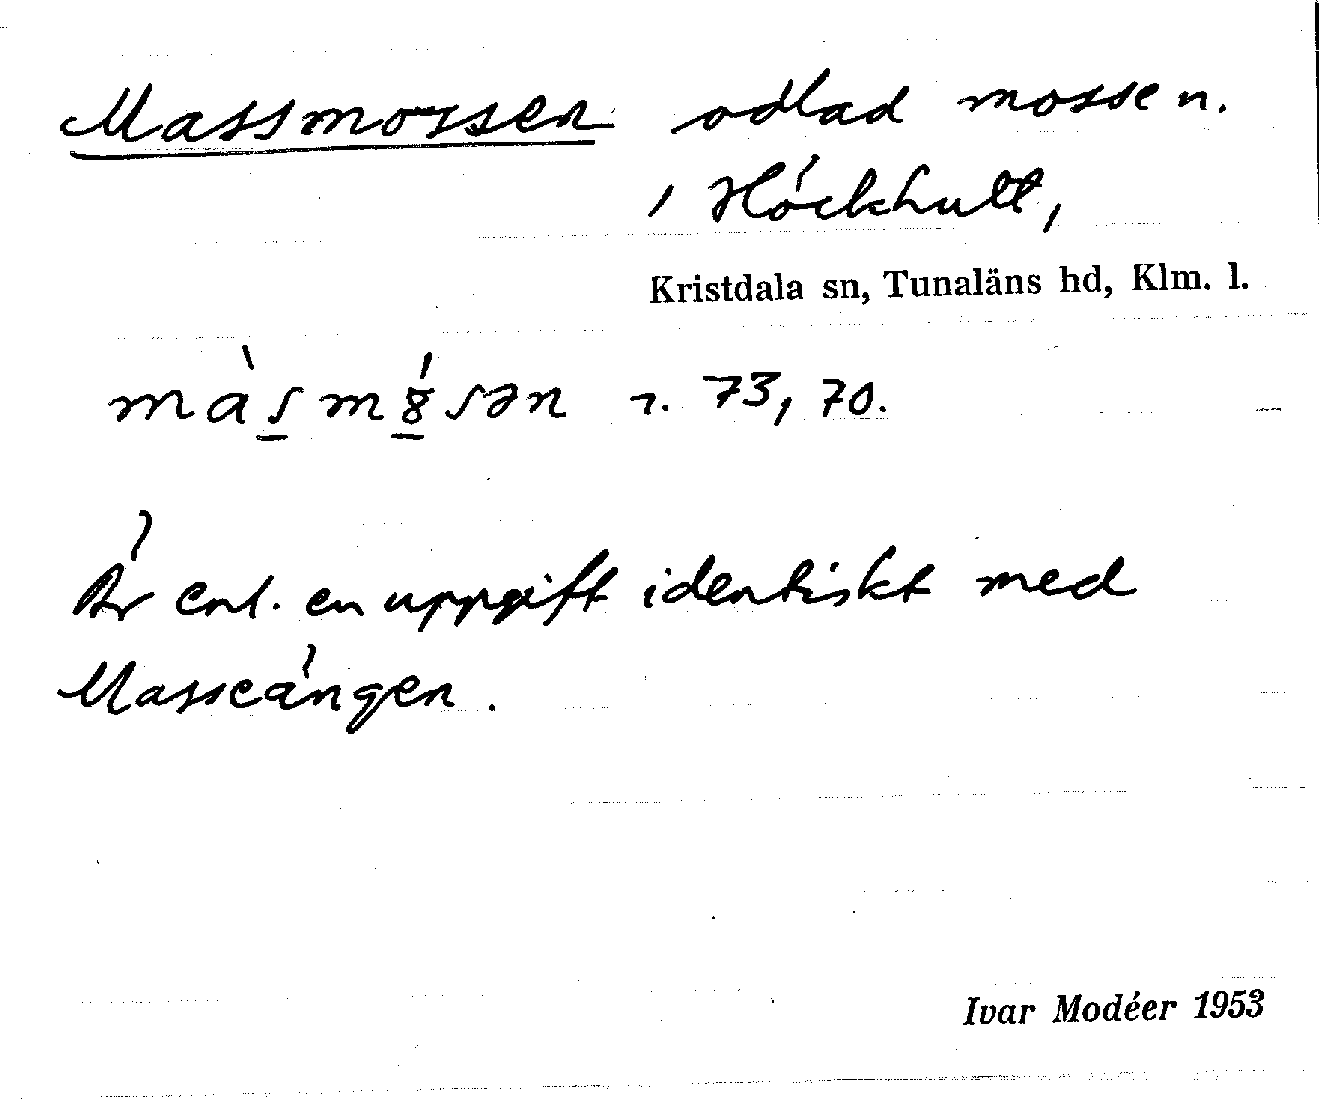 Massmossen odlad mosse n.
i Höckhult,
Kristdala sn, Tunaläns hd, Klm. l.
màsm8́sən r. 73, 70.
Är enl. en uppgift identiskt med
Masseängen.
Ivar Modéer 1953